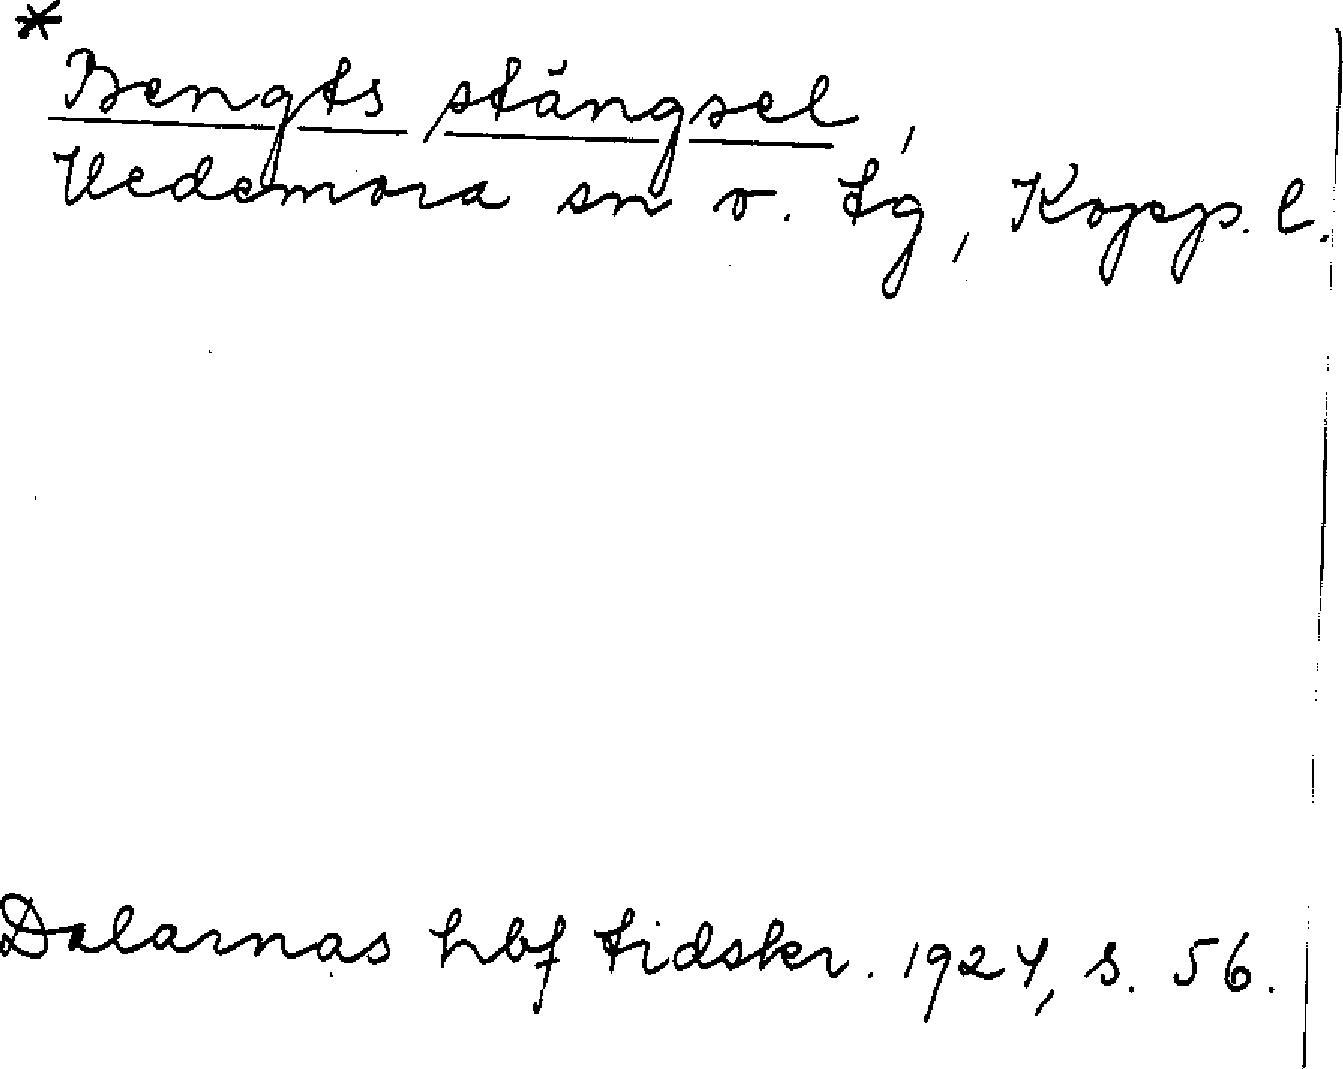 *
Bengts stängsel,
Vedemora sn o. tg, Kopp. l.
Dalarnas hbf tidskr. 1924, s. 56.